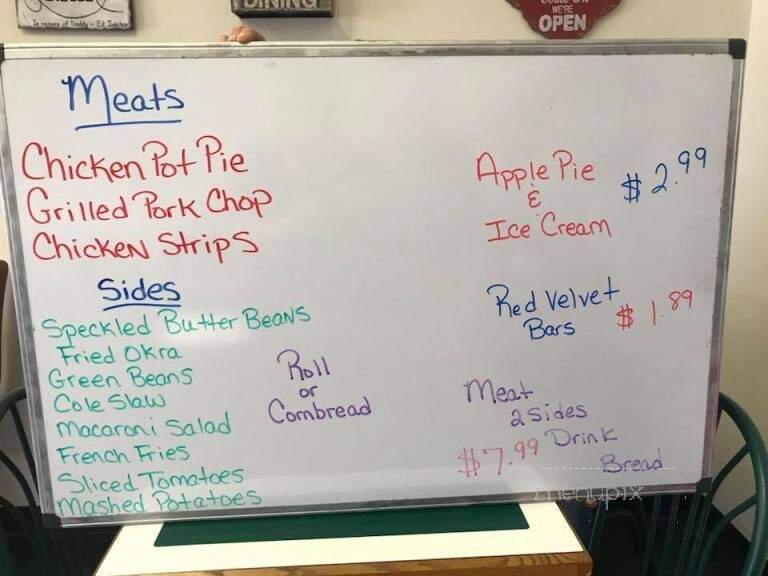 In memory of Daddy - Ed
DINING
WE'RE
OPEN
Meats
Chicken Pot Pie
Grilled Pork Chop
Chicken Strips
Sides
Speckled Butter Beans
Fried Okra
Green Beans
Cole Slaw
Macaroni Salad
French Fries
Sliced Tomatoes
Mashed Potatoes
Roll
or
Cornbread
Apple Pie
&
Ice Cream
$2.99
Red Velvet
Bars
$1.89
Meat
2 Sides
Drink
$7.99
Bread
menupix